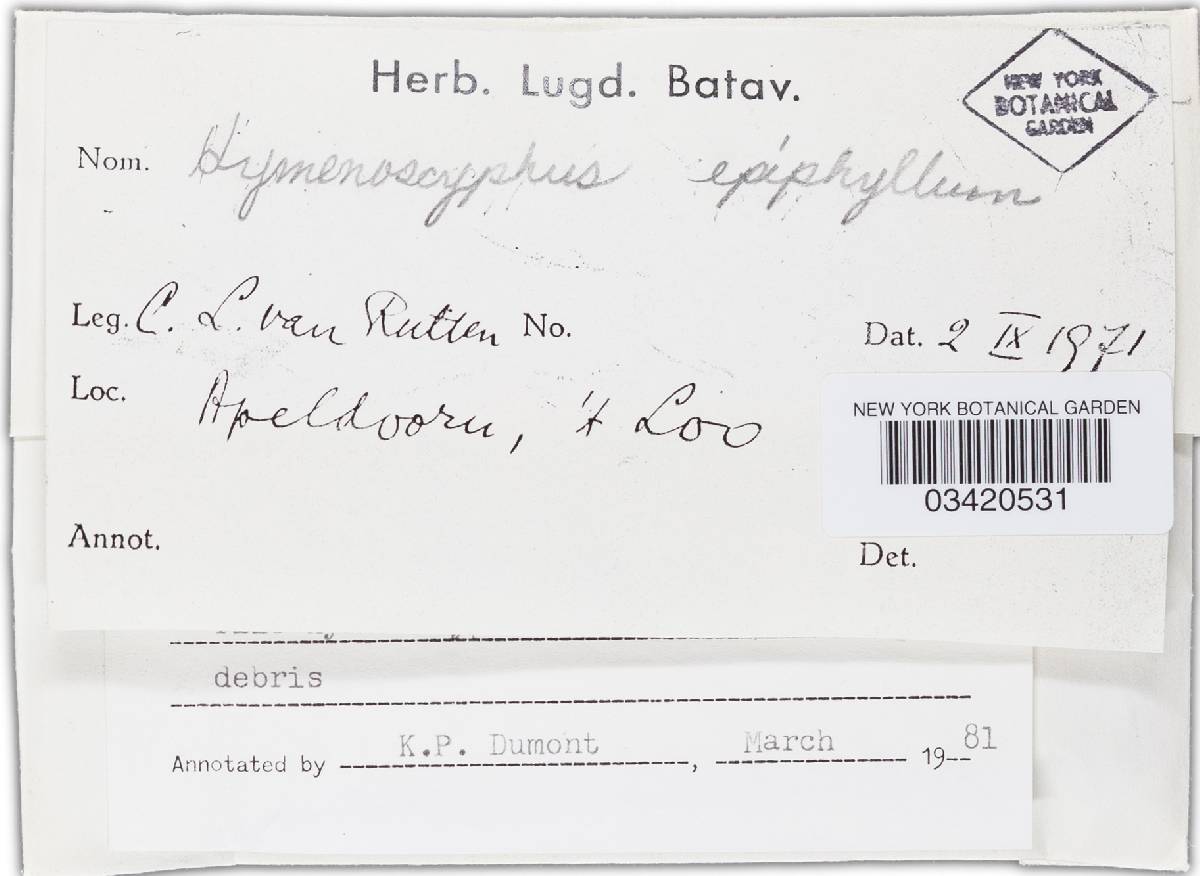 Herb. Lugd. Batav.
NEW YORK
BOTANICAL
GARDEN
Nom. Hymenoscyphus epiphyllum
Leg. C. L. van Rutten No.
Dat. 2 IX 1971
Loc. Apeldoorn, 't Loo
NEW YORK BOTANICAL GARDEN
03420531
Annot.
Det.
debris
Annotated by K.P. Dumont, March 1981